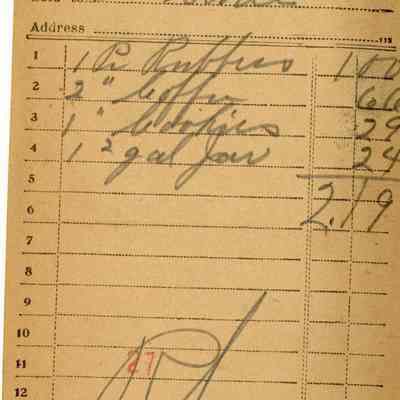 Address
1 1 Pr Rubbers 1 00
2 2 " Coffee 66
3 1 " Cookies 29
4 1 2 gal Jar 24
5
6 2.19
7
8
9
10
11 27
12